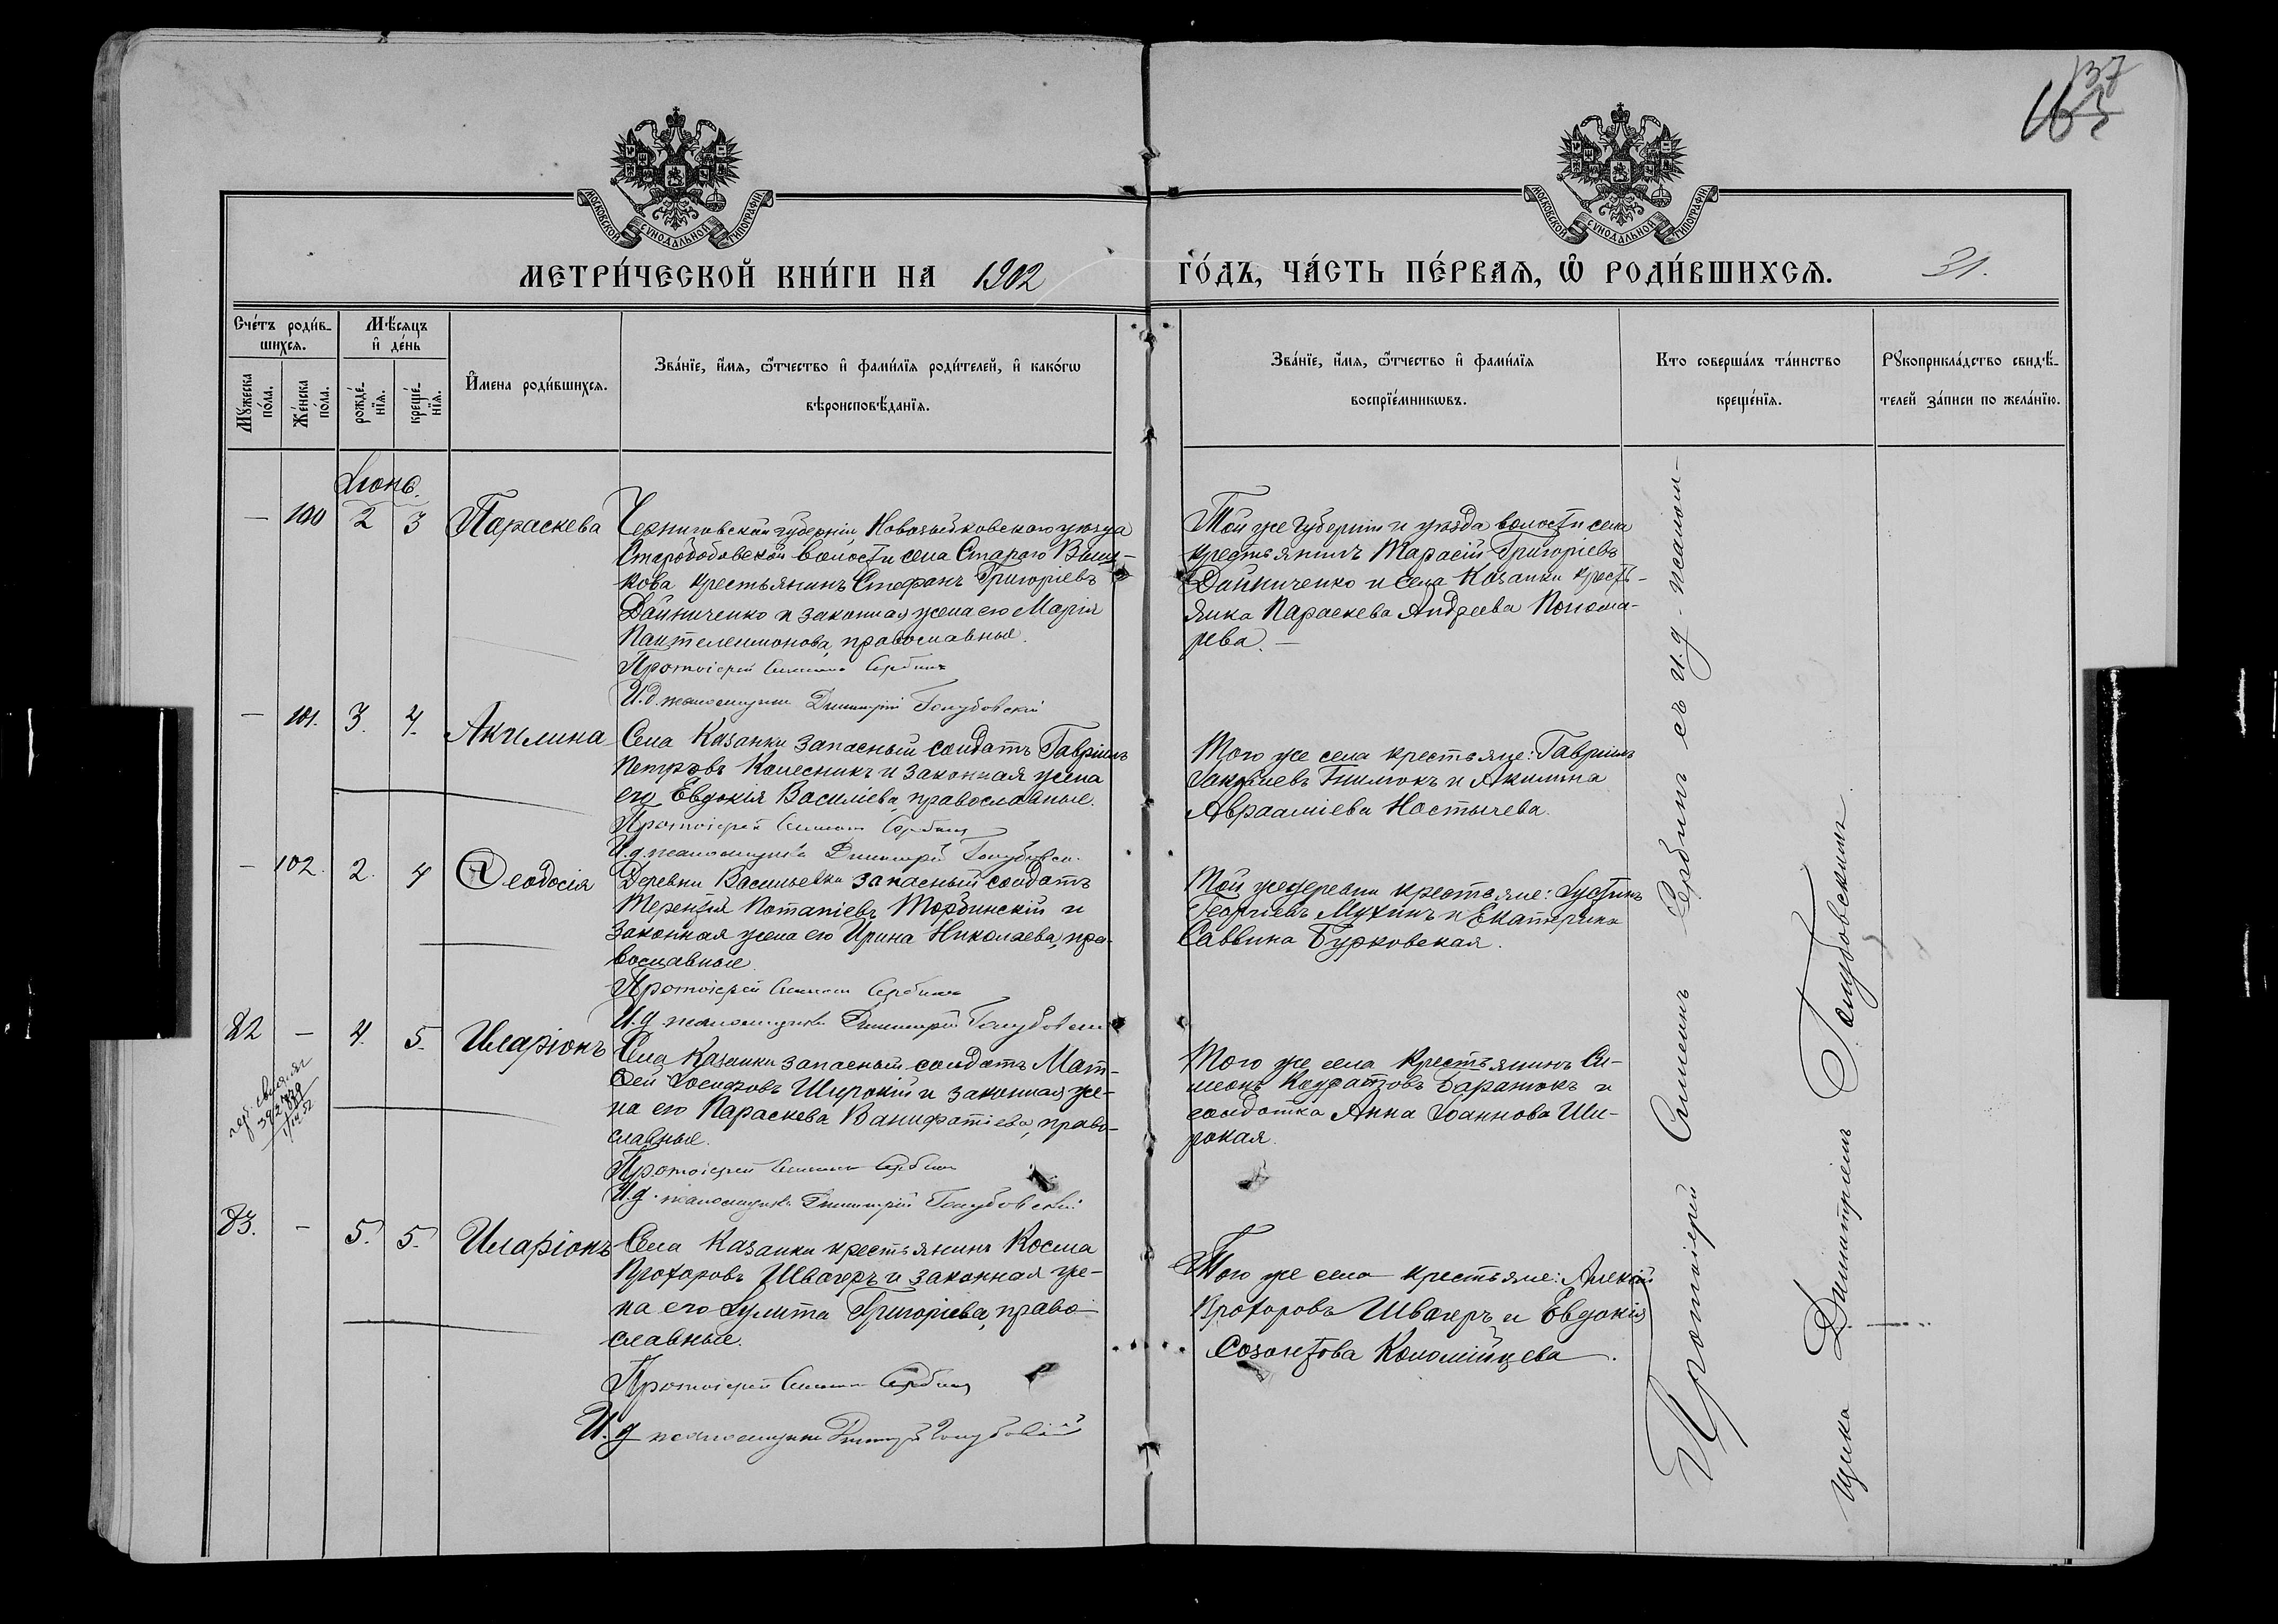 137
165
МОСКОВСКОЙ СѴНОДАЛЬНОЙ ТИПОГРАФІИ
МОСКОВСКОЙ СѴНОДАЛЬНОЙ ТИПОГРАФІИ
МЕТРИ́ЧЕСКОЙ КНИ́ГИ НА 1902
ГО́ДЪ, ЧА́СТЬ ПЕ́РВАЯ, Ѡ҆ РОДИ́ВШИХСЯ. 31.
Сче́тъ роди́в-
шихся.
Мꙋ́жеска по́ла.
Же́нска по́ла.
Мѣ́сяцъ
и҆ де́нь
рожде́-
нїя.
креще́-
нїя.
И҆мена роди́вшихся.
Зва́нїе, и҆́мя, ѻ҆́тчество и҆ фами́лїя роди́телей, и҆ како́гѡ
вѣроисповѣ́данїя.
Зва́нїе, и҆́мя, ѻ҆́тчество и҆ фами́лїя
воспрїе́мникѡвъ.
Кто соверша́лъ та́инство
креще́нїя.
Рꙋкоприкла́дство свидѣ́-
телей за́писи по жела́нїю.
Іюнь.
— 100 2 3 Параскева
Черниговской губерніи Новозыбковскаго уѣзда
Старобобовской волости села Стараго Выш-
кова крестьянинъ Стефанъ Григоріевъ
Дайниченко и законная жена его Марія
Пантелеимонова, православные.
Протоіерей Симеонъ Сербинъ
И.д. псаломщика Димитрій Голубовскій
Той же губерніи и уѣзда волости села
крестьянинъ Тарасій Григоріевъ
Дайниченко и села Казанки кресть-
янка Параскева Андреева Понома-
рева. —
— 101. 3. 4. Акилина
Села Казанки запасный солдатъ Гавріилъ
Петровъ Колесникъ и законная жена
его Евдокія Василіева, православные.
Протоіерей Симеонъ Сербинъ
И.д. псаломщика Димитрій Голубовск.
Того же села крестьяне: Гавріилъ
Гнилюкъ и Акилина
Авраамiева Костычева.
— 102. 2. 4 Ѳеодосія
Деревни Васильевки запасный солдатъ
Терентій Потапіевъ Торбинскій и
законная жена его Ирина Николаева, пра-
вославные.
Протоіерей Симеонъ Сербинъ
И.д. псаломщика Димитрій Голубовскій
Той же деревни крестьяне: Іустинъ
Георгіевъ Мухинъ и Екатерина
Саввина Бурковская.
82 — 4. 5. Иларіонъ
Села Казанки запасный солдатъ Мат-
ѳей Іосифовъ Широкій и законная же-
на его Параскева Ванифатіева, право-
славные.
Протоіерей Симеонъ Сербинъ
И.д. псаломщика Димитрій Голубовскій
Того же села крестьянинъ Си-
меонъ Кодратовъ Баранюкъ и
солдатка Анна Іоаннова Ши-
рокая.
83. — 5. 5. Иларіонъ
Села Казанки крестьянинъ Косма
Прохоровъ Швагеръ и законная же-
на его Іулита Григоріева, право-
славные.
Протоіерей Симеонъ Сербинъ
И.д. псаломщика Димитрій Голубовскій
Того же села крестьяне: Алексій
Прохоровъ Швагеръ и Евдокія
Созонтова Коломійцева.
Протоіерей Симеонъ Сербинъ съ и.д. псалом-
щика Димитріемъ Голубовскимъ.